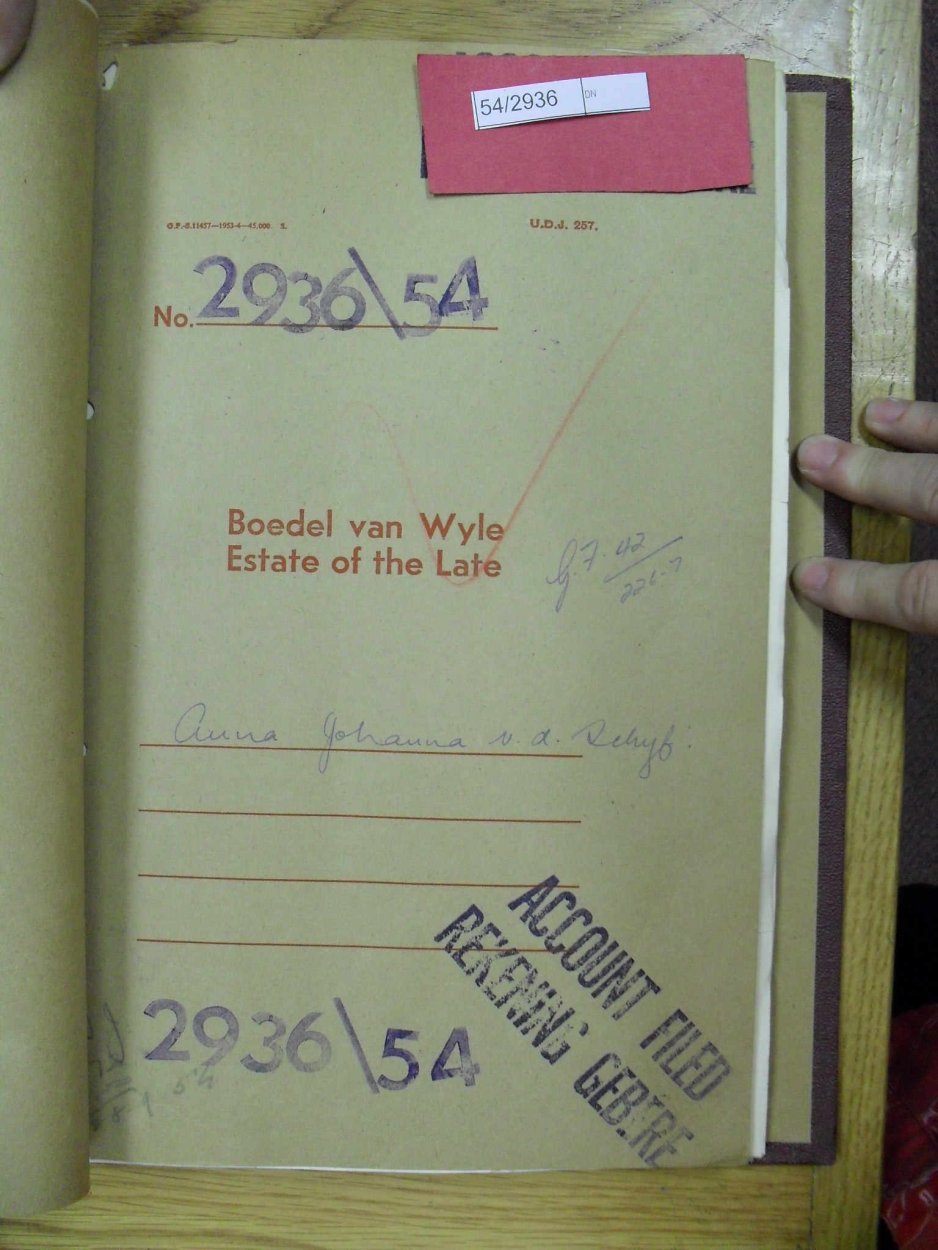 54/2936 DN
G.P.-S.11457—1953-4—45,000 S.
U.D.J. 257.
No. 2936\54
Boedel van Wyle
Estate of the Late
G.7.42
226-7
Anna Johanna v. d. Schyf
ACCOUNT FILED
REKENING GEB
2936\54